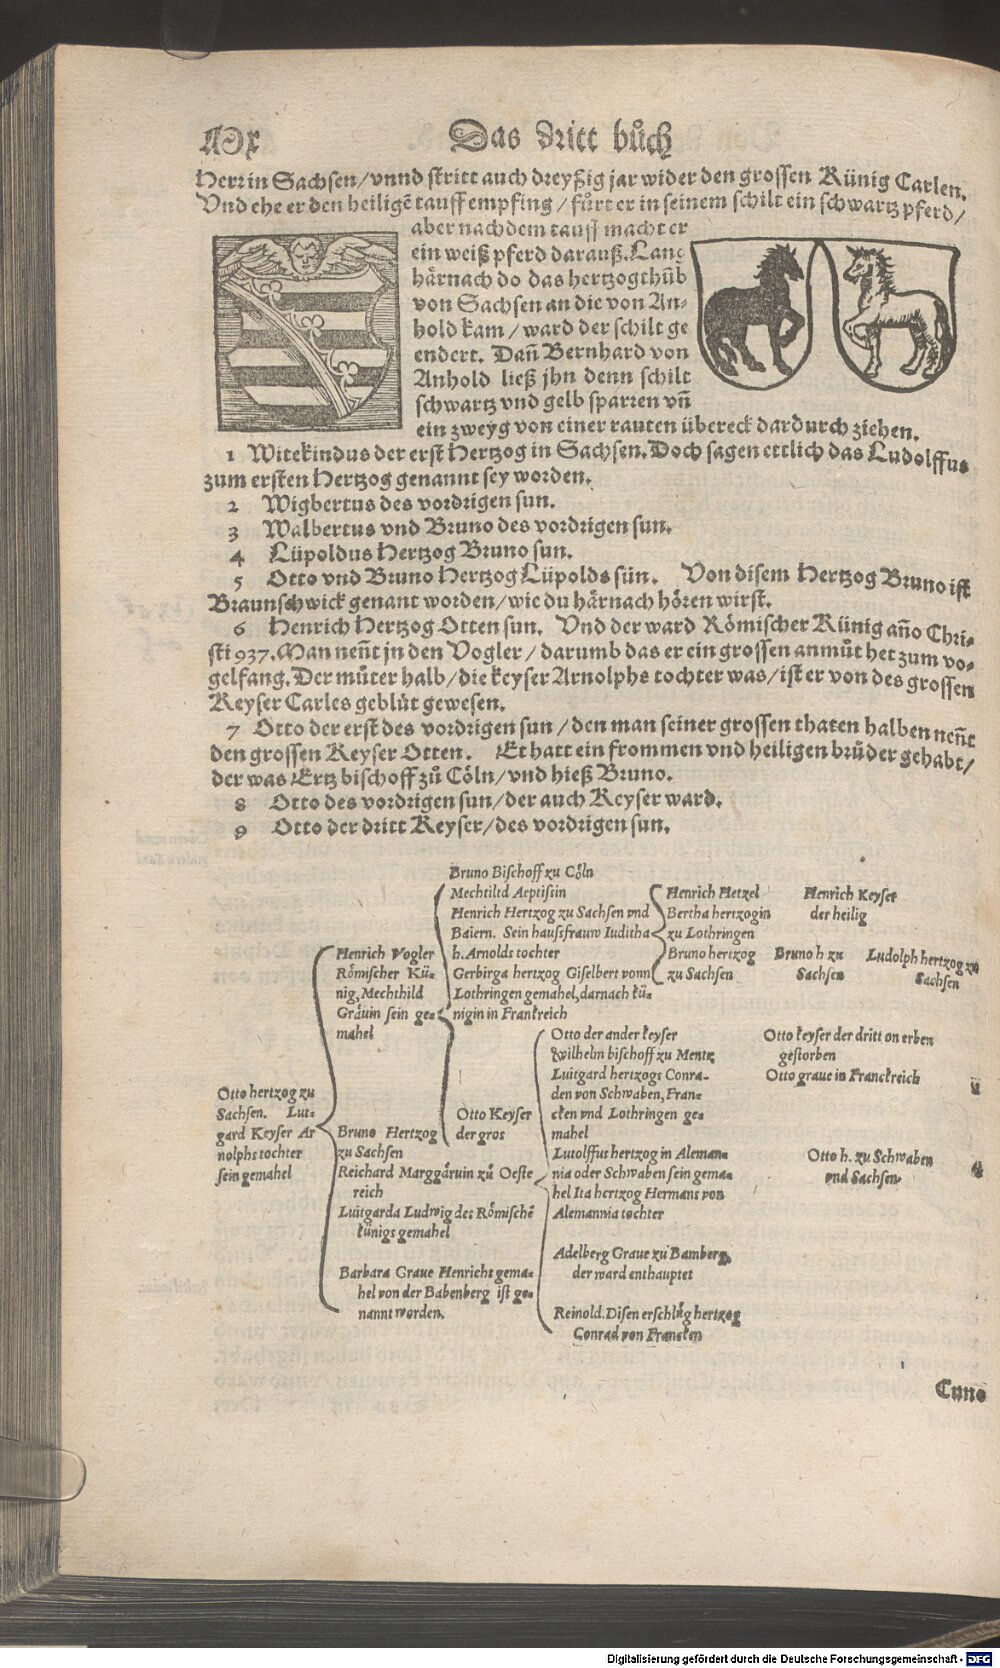 Das dritt bůch
Herr in Sachsen/vnnd stritt auch dreyßig jar wider den grossen Künig Carlen.
Vnd ehe er den heiligē tauff empfing / fůrt er in seinem schilt ein schwartz pferd/
aber nach dem tauff macht er
ein weiß pferd darauß. Lang
härnach do das hertzogthůb
von Sachsen an die von An-
hold kam / ward der schilt ge
endert. Dañ Bernhard von
Anhold ließ jhn denn schilt
schwartz vnd gelb sparren vñ
ein zweyg von einer rauten übereck dardurch ziehen.
1 Witekindus der erst Hertzog in Sachsen. Doch sagen ettlich das Ludolffus
zum ersten Hertzog genannt sey worden.
2 Wigbertus des vordrigen sun.
3 Walbertus vnd Bruno des vordrigen sun.
4 Lüpoldus Hertzog Bruno sun.
5 Otto vnd Bruno Hertzog Lüpolds sün. Von disem Hertzog Bruno ist
Braunschwick genant worden/wie du härnach hören wirst.
6 Henrich Hertzog Otten sun. Vnd der ward Römischer Künig año Chri-
sti 937. Man neñt jn den Vogler / darumb das er ein grossen anmůt het zum vo-
gelfang. Der můter halb/die keyser Arnolphs tochter was/ist er von des grossen
Keyser Carles geblůt gewesen.
7 Otto der erst des vordrigen sun /den man seiner grossen thaten halben neñt
den grossen Keyser Otten. Er hatt ein frommen vnd heiligen brůder gehabt/
der was Ertzbischoff zů Cöln/vnd hieß Bruno.
8 Otto des vordrigen sun/der auch Keyser ward.
9 Otto der dritt Keyser/des vordrigen sun.
Bruno Bischoff zu Cöln
Mechtiltd Aeptissin
Henrich Hertzog zu Sachsen vnd
Baiern. Sein haussfrauw Iuditha
h. Arnolds tochter
Gerbirga hertzog Giselbert vonn
Lothringen gemahel, darnach kü-
nigin in Frankreich
Henrich Hetzel
Bertha hertzogin
zu Lothringen
Bruno hertzog
zu Sachsen
Henrich Keyser
der heilig
Bruno h zu
Sachsen
Ludolph hertzog zu
Sachsen
Henrich Vogler
Römischer Kü-
nig, Mechthild
Gräuin sein ge-
mahel
Otto hertzog zu
Sachsen. Lut-
gard Keyser Ar
nolphs tochter
sein gemahel
Otto Keyser
der gros
Otto der ander keyser
Wilhelm bischoff zu Mentz
Luitgard hertzogs Conra-
den von Schwaben, Fran-
cken vnd Lothringen ge
mahel
Lutolffus hertzog in Aleman-
nia oder Schwaben sein gema-
hel Ita hertzog Hermans von
Alemannia tochter
Otto keyser der dritt on erben
gestorben
Otto graue in Franckreich
Otto h. zu Schwaben
vnd Sachsen
Bruno Hertzog
zu Sachsen
Reichard Marggäruin zů Oeste
reich
Luitgarda Ludwig des Römischē
künigs gemahel
Barbara Graue Henrichs gema-
hel von der Babenberg ist ge-
nannt worden.
Adelberg Graue zu Bamberg,
der ward enthauptet
Reinold. Disen erschlůg hertzog
Conrad von Francken
Cuno
Digitalisierung gefördert durch die Deutsche Forschungsgemeinschaft - DFG